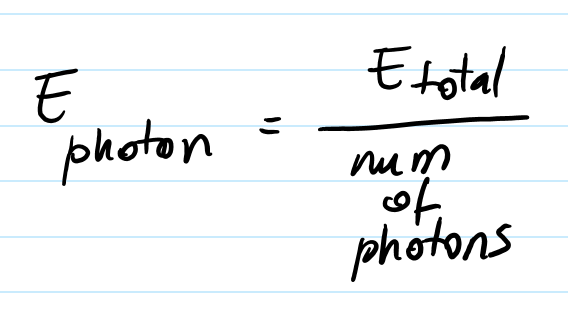 E photon = E total / num of photons